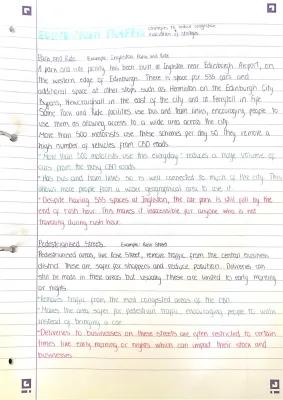 strategies to reduce congestion
evaluation of strategies
Park and Ride Example: Ingleston Park and Ride
A park and ride facility has been built at Ingleston near Edinburgh Airport, on
the western edge of Edinburgh. There is space for 535 cars and
additional space at other stops such as Hermiston on the Edinburgh City
Bypass, Newcraighall in the east of the city and at Ferrytoll in Fife
Some Park and Ride facilities use bus and tram links, encouraging people to
use them as allowing access to a wide area across the city.
More than 500 motorists use these schemes per day so they remove a
high number of vehicles from CBD roads.
• More than 500 motorists use this everyday: reduces a huge volume of
cars from the busy CBD roads
• Has bus and tram links so is well connected to much of the city. This
allows more people from a wider geographical area to use it.
• Despite having 535 spaces at Ingleston, the car park is still full by the
end of rush hour. This makes it inaccessible for anyone who is not
travelling during rush hour.
Pedestrianised Streets Example: Rose Street
Pedestrianised areas, like Rose Street, remove traffic from the central business
district. These are safer for shoppers and reduce pollution. Deliveries can
still be made in these areas but usually these are limited to early morning
or nights.
• Removes traffic from the most congested areas of the CBD.
• Makes the area safer for pedestrian traffic, encouraging people to walk
instead of bringing a car
• Deliveries to businesses on these streets are often restricted to certain
times like early morning or nights which can impact their stock and
businesses.